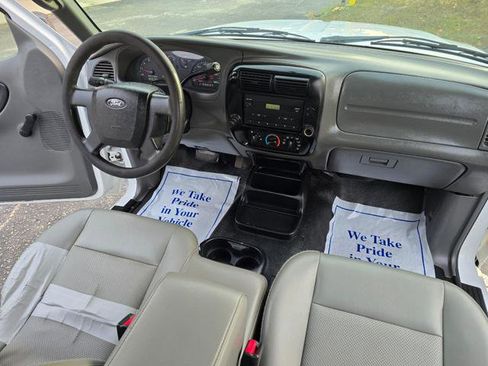 Ford
We Take
Pride
in Your
Vehicle
We Take
Pride
in Your